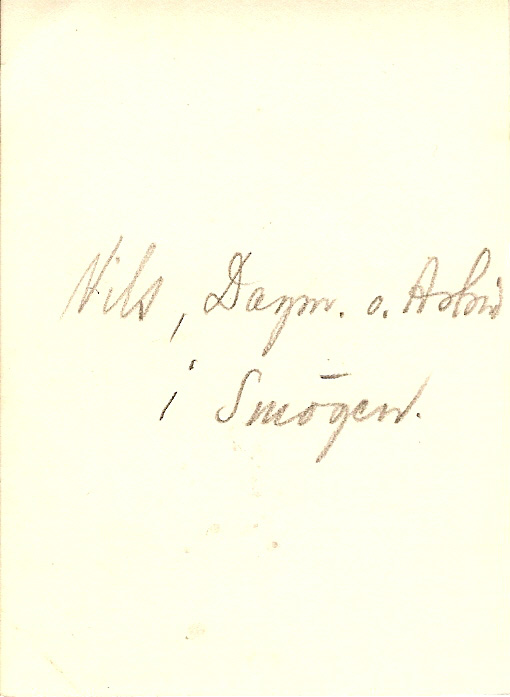 Nils, Dagm. o. Astrid
i Smögen.